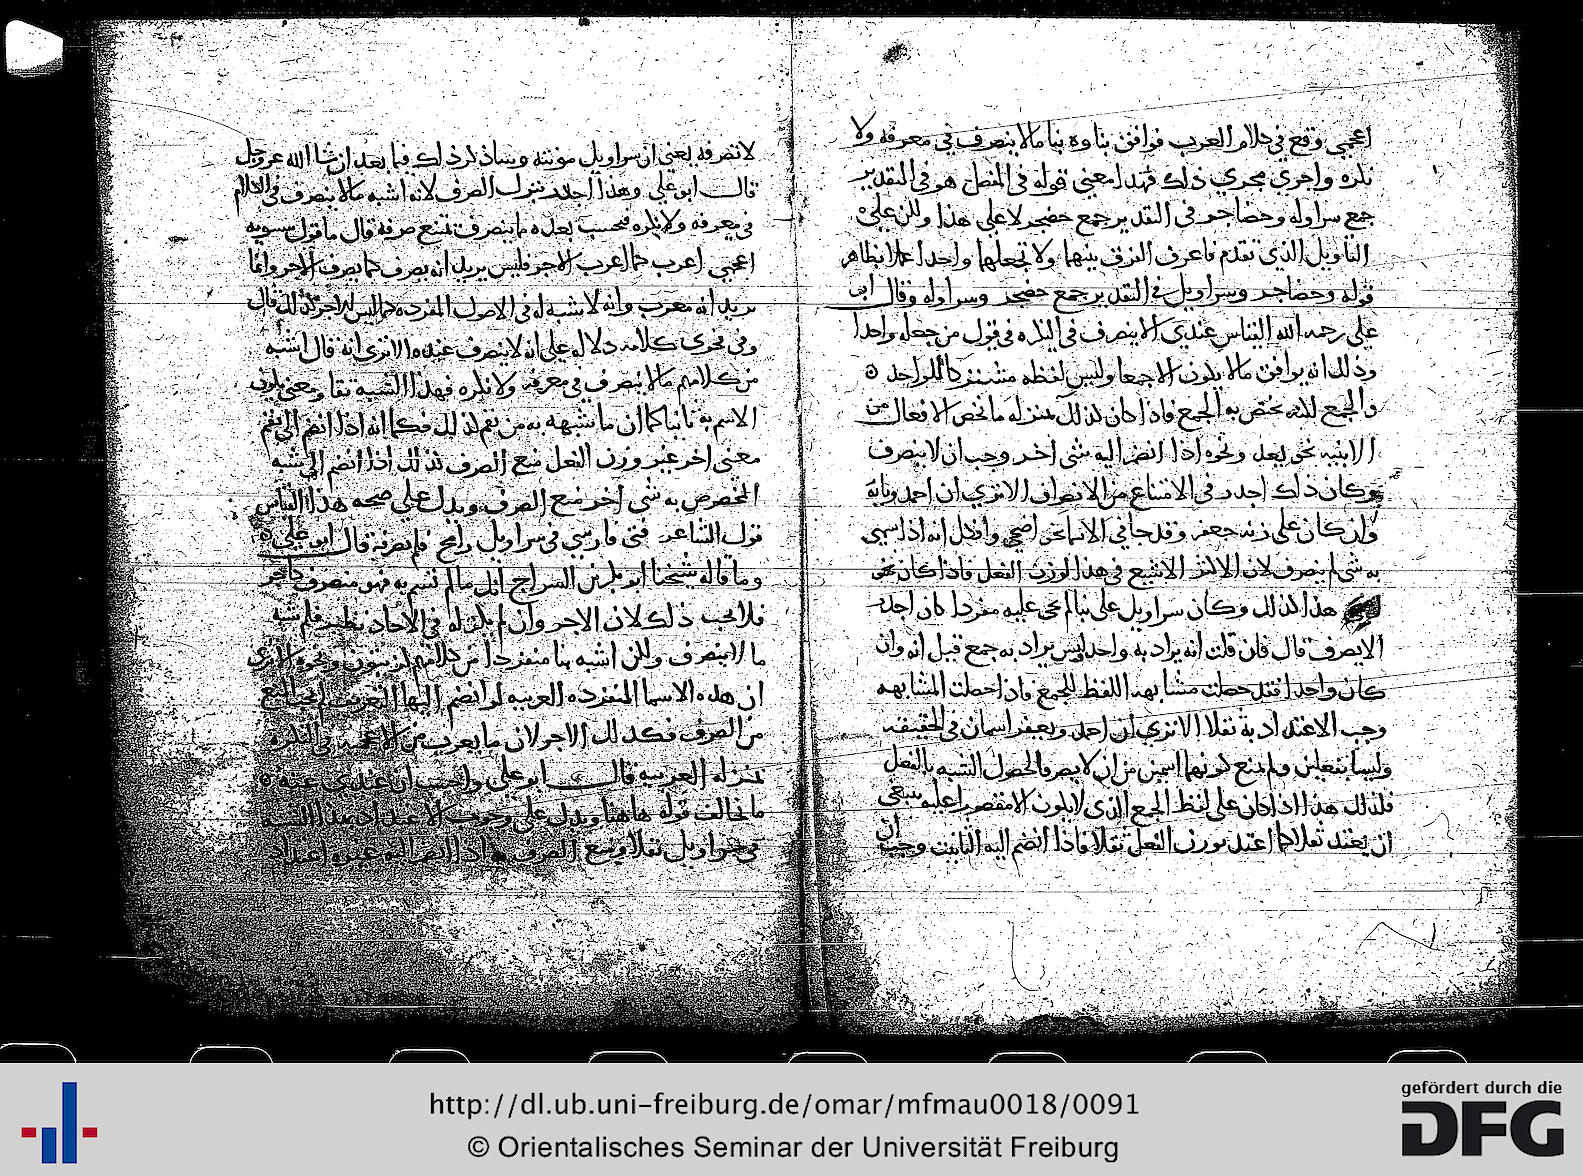 اعجمي وقع في كلام العرب فوافق بناوه بنا ما لا ينصرف في معرفه ولا
نكره واجري مجري ذلك فهذا معني قوله في المتصل هو في التقدير
جمع سراوله وحضاجر في التقدير جمع حضجر لا علي هذا ولكن علي
التاويل الذي تقدم فاعرف الفرق بينهما ولا تجعلهما واحدا عملا بظاهر
قوله وحضاجر وسراويل في التقدير جمع حضجر وسراوله وقال ابو
علي رحمه الله القياس عندي الا ينصرف في النكره في قول من جعله واحدا
وذلك انه يوافق ما لا يكون الا جمعا وليس لفظه مشتركا للواحد
والجمع لكنه يختص به الجمع فاذا كان كذلك بمنزله ما يخص الافعال من
الابنيه نحو يعد ونحوه اذا انضم اليه شي اخر وجب ان لا ينصرف
وكان ذلك اجدر في الامتناع من الانصراف الا تري ان احمد وبابه
وان كان علي زنه جعفر وقد جا في الاسما نحو اضحي وافكل انه اذا سمي
به شي لم ينصرف لان الاكثر الاشيع في هذا الوزن الفعل فاذا كان نحو
هذا كذلك وكان سراويل علي بنا لم يجي عليه مفردا كان اجدر
الا يصرف قال فان قلت انه يراد به واحد وليس يراد به جمع قيل انه وان
كان واحدا فقد حصلت مشابهه اللفظ للجمع فاذا حصلت المشابهه
وجب الاعتداد به ثقلا الا تري ان احمد ويعفر اسمان في الحقيقه
وليسا بفعلين ولم يمنع كونهما اسمين من ان لا يصرفا لحصول الشبه بالفعل
فكذلك هذا اذا كان علي لفظ الجمع الذي لا يكون الا مقصورا عليه ينبغي
ان يعتد ثقلا كما اعتد بوزن الفعل ثقلا فاذا انضم اليه التانيث وجب ان
لا تصرفه يعني ان سراويل مونثه وسنذكر ذلك فيما بعد ان شا الله عز وجل
قال ابو علي وهذا اجدر بترك الصرف لانه اشبه ما لا ينصرف في الكلام
في معرفه ولا نكره فحسب بعده ما ينصرف تمنع صرفه قال ما قول سيبويه
اعجمي اعرب كما اعرب الاجر فليس يريد انه يصرف كما يصرف الاجر وانما
يريد انه معرب وانه لا شبه له في الاصول المفرده كما ليس للاجر كذلك قال
وفي فحوي كلامه دلاله علي انه لا ينصرف عنده الا تري انه قال اشبه
من كلامهم ما لا ينصرف في معرفه ولا نكره فهذا الشبه ثقل ومعني يكون
الاسم به ثانيا كما ان ما تشبهه به من نعم كذلك فكما انه اذا انضم الي نعم
معني اخر غير وزن الفعل منع الصرف كذلك اذا انضم الي شبه
المخصوص به شي اخر منع الصرف ويدل علي صحه هذا القياس
قول الشاعر فتي فارسي في سراويل رامح فلم يصرفه قال ابو علي
وما قاله شيخنا ابو بكر بن السراج انك ما لم تسم به فهو منصرف كاجر
فلا يجب ذلك لان الاجر وان لم يكن له في الاحاد نظير فلم يشبه
ما لا ينصرف ولكن اشبه بنا منفردا من كلامهم ونحوه الا تري
ان هذه الاسما المنفرده العربيه لو انضم اليها التعريف لم يجب المنع
من الصرف فكذلك الاجر لان ما يعرب من الاعجميه في النكره
بمنزله العربيه قال ابو علي واحسب ان عندي عنه
ما يخالف قوله هاهنا ويدل علي وجوب الاعتداد بهذا الشبه
في سراويل ثقلا ومنع الصرف اذا انضم اليه غيره اعتداد
http://dl.ub.uni-freiburg.de/omar/mfmau0018/0091
© Orientalisches Seminar der Universität Freiburg
gefördert durch die
DFG